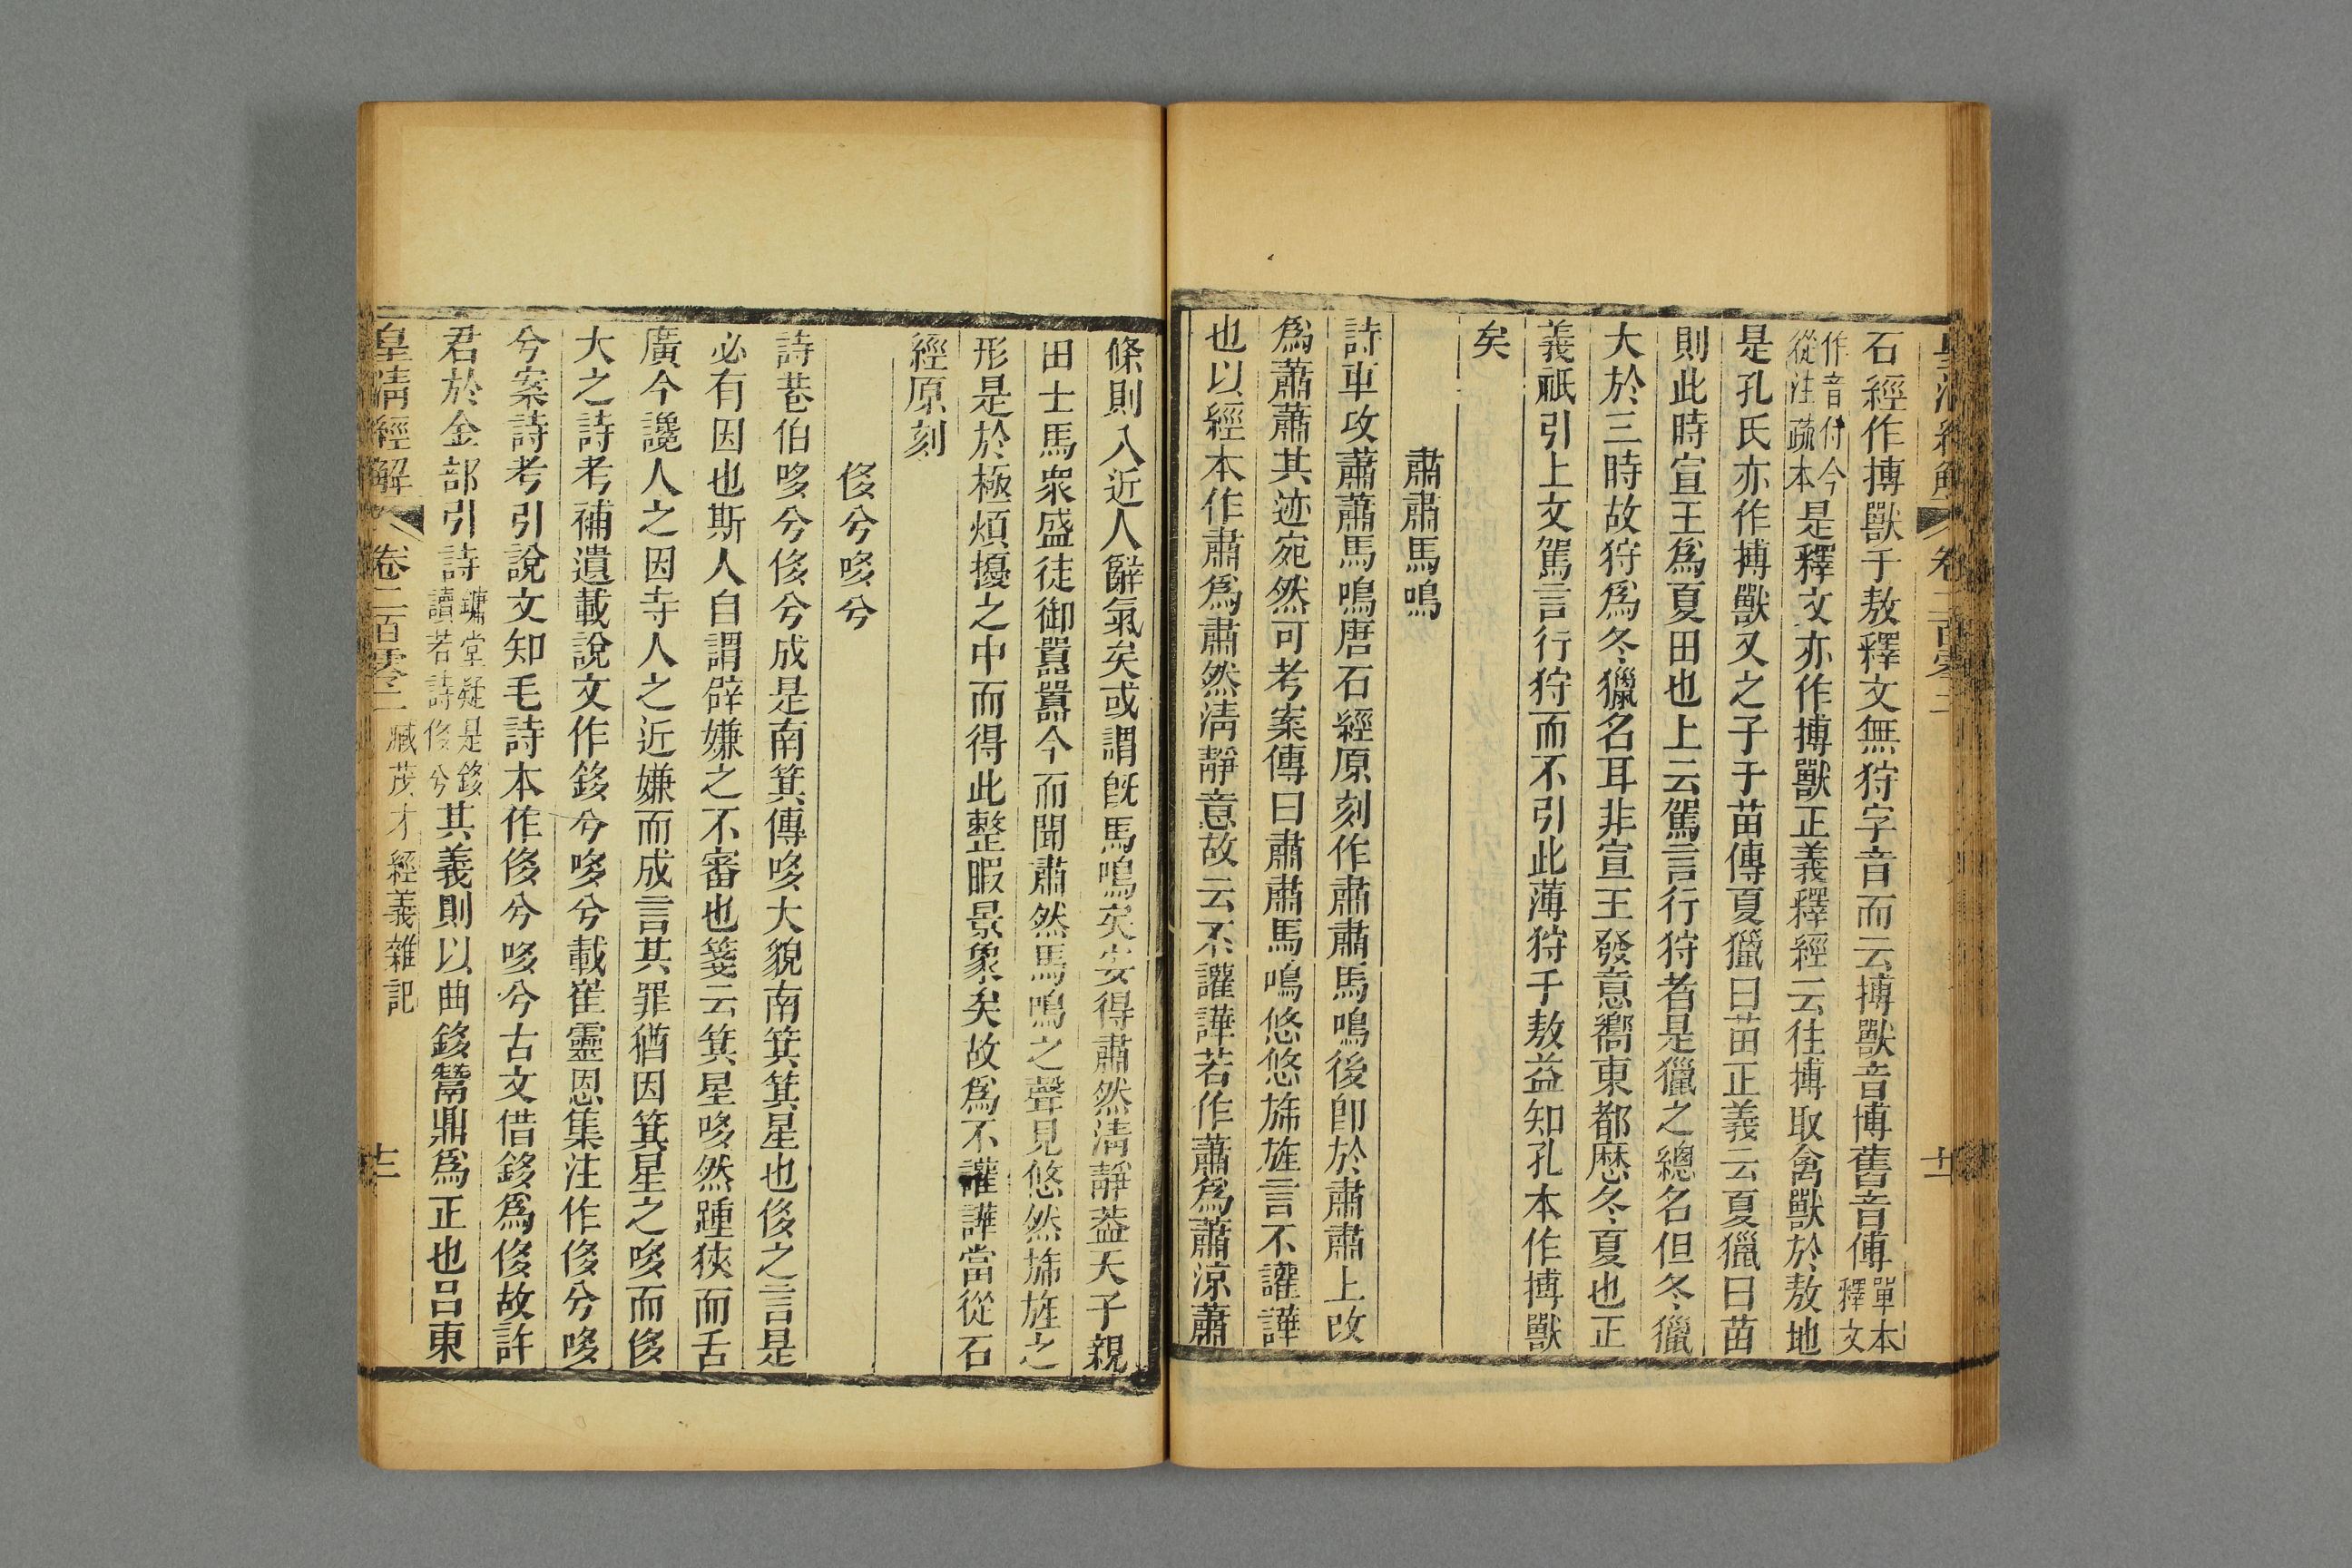 石經作搏獸于敖釋文無狩字音而云搏獸音博舊音傅單本釋文
作音付今從注疏本是釋文亦作搏獸正義釋經云往搏取禽獸於敖地
是孔氏亦作搏獸又之子于苗傳夏獵曰苗正義云夏獵曰苗
則此時宣王爲夏田也上云駕言行狩者是獵之總名但冬獵
大於三時故狩爲冬獵名耳非宣王發意嚮東都歷冬夏也正
義祇引上文駕言行狩而不引此薄狩于敖益知孔本作搏獸
矣
肅肅馬鳴
詩車攻蕭蕭馬鳴唐石經原刻作肅肅馬鳴後卽於肅肅上改
爲蕭蕭其迹宛然可考案傳曰肅肅馬鳴悠悠旆旌言不讙譁
也以經本作肅爲肅然淸靜意故云不讙譁若作蕭爲蕭涼蕭
條則入近人辭氣矣或謂旣馬鳴矣安得肅然淸靜葢天子親
田士馬衆盛徒御囂囂今而聞肅然馬鳴之聲見悠然旆旌之
形是於極煩擾之中而得此整暇景象矣故爲不讙譁當從石
經原刻
侈兮哆兮
詩巷伯哆兮侈兮成是南箕傳哆大貌南箕箕星也侈之言是
必有因也斯人自謂辟嫌之不審也箋云箕星哆然踵狹而舌
廣今讒人之因寺人之近嫌而成言其罪猶因箕星之哆而侈
大之詩考補遺載說文作鉹兮哆兮載崔靈恩集注作侈兮哆
兮案詩考引說文知毛詩本作侈兮哆兮古文借鉹爲侈故許
君於金部引詩鏞堂疑是鉹讀若詩侈兮其義則以曲鉹鬵鼎爲正也呂東
皇淸經解 卷二百零二 臧茂才經義雜記 十三